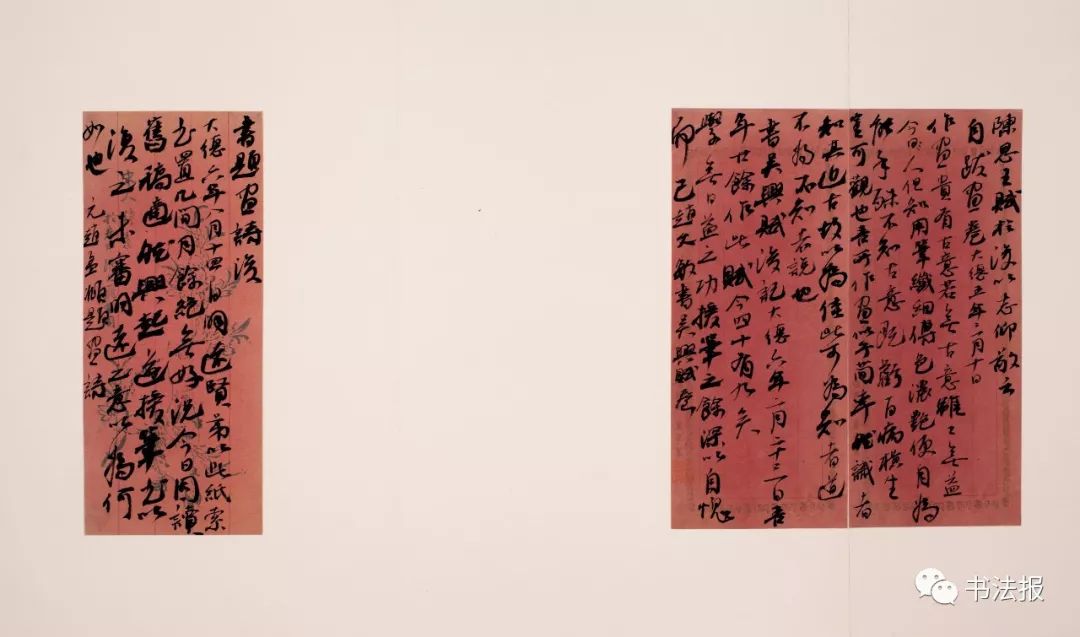 陳思王賦於後以志仰敬云
自跋畫卷 大德五年三月十日
作畫貴有古意若無古意雖工無益
今時人但知用筆纖細傅色濃艷便自為
能手殊不知古意既虧百病橫生
豈可觀也吾所作畫似乎簡率然識者
知其近古故以為佳此可為知者道
不為不知者說也
書吳興賦後記 大德六年二月二十二日吾
年廿餘作此賦今四十有九矣
學無日益之功援筆之餘深以自愧
而已趙文敏書吳興賦卷
書題畫詩後
大德六年八月十四日明遠賢弟以此紙索
書置几間月餘絕無好況今日因讀
舊稿適然興起遂援筆書以
復之未審明遠之意以為何
如也 元趙孟頫題畫詩
书法报